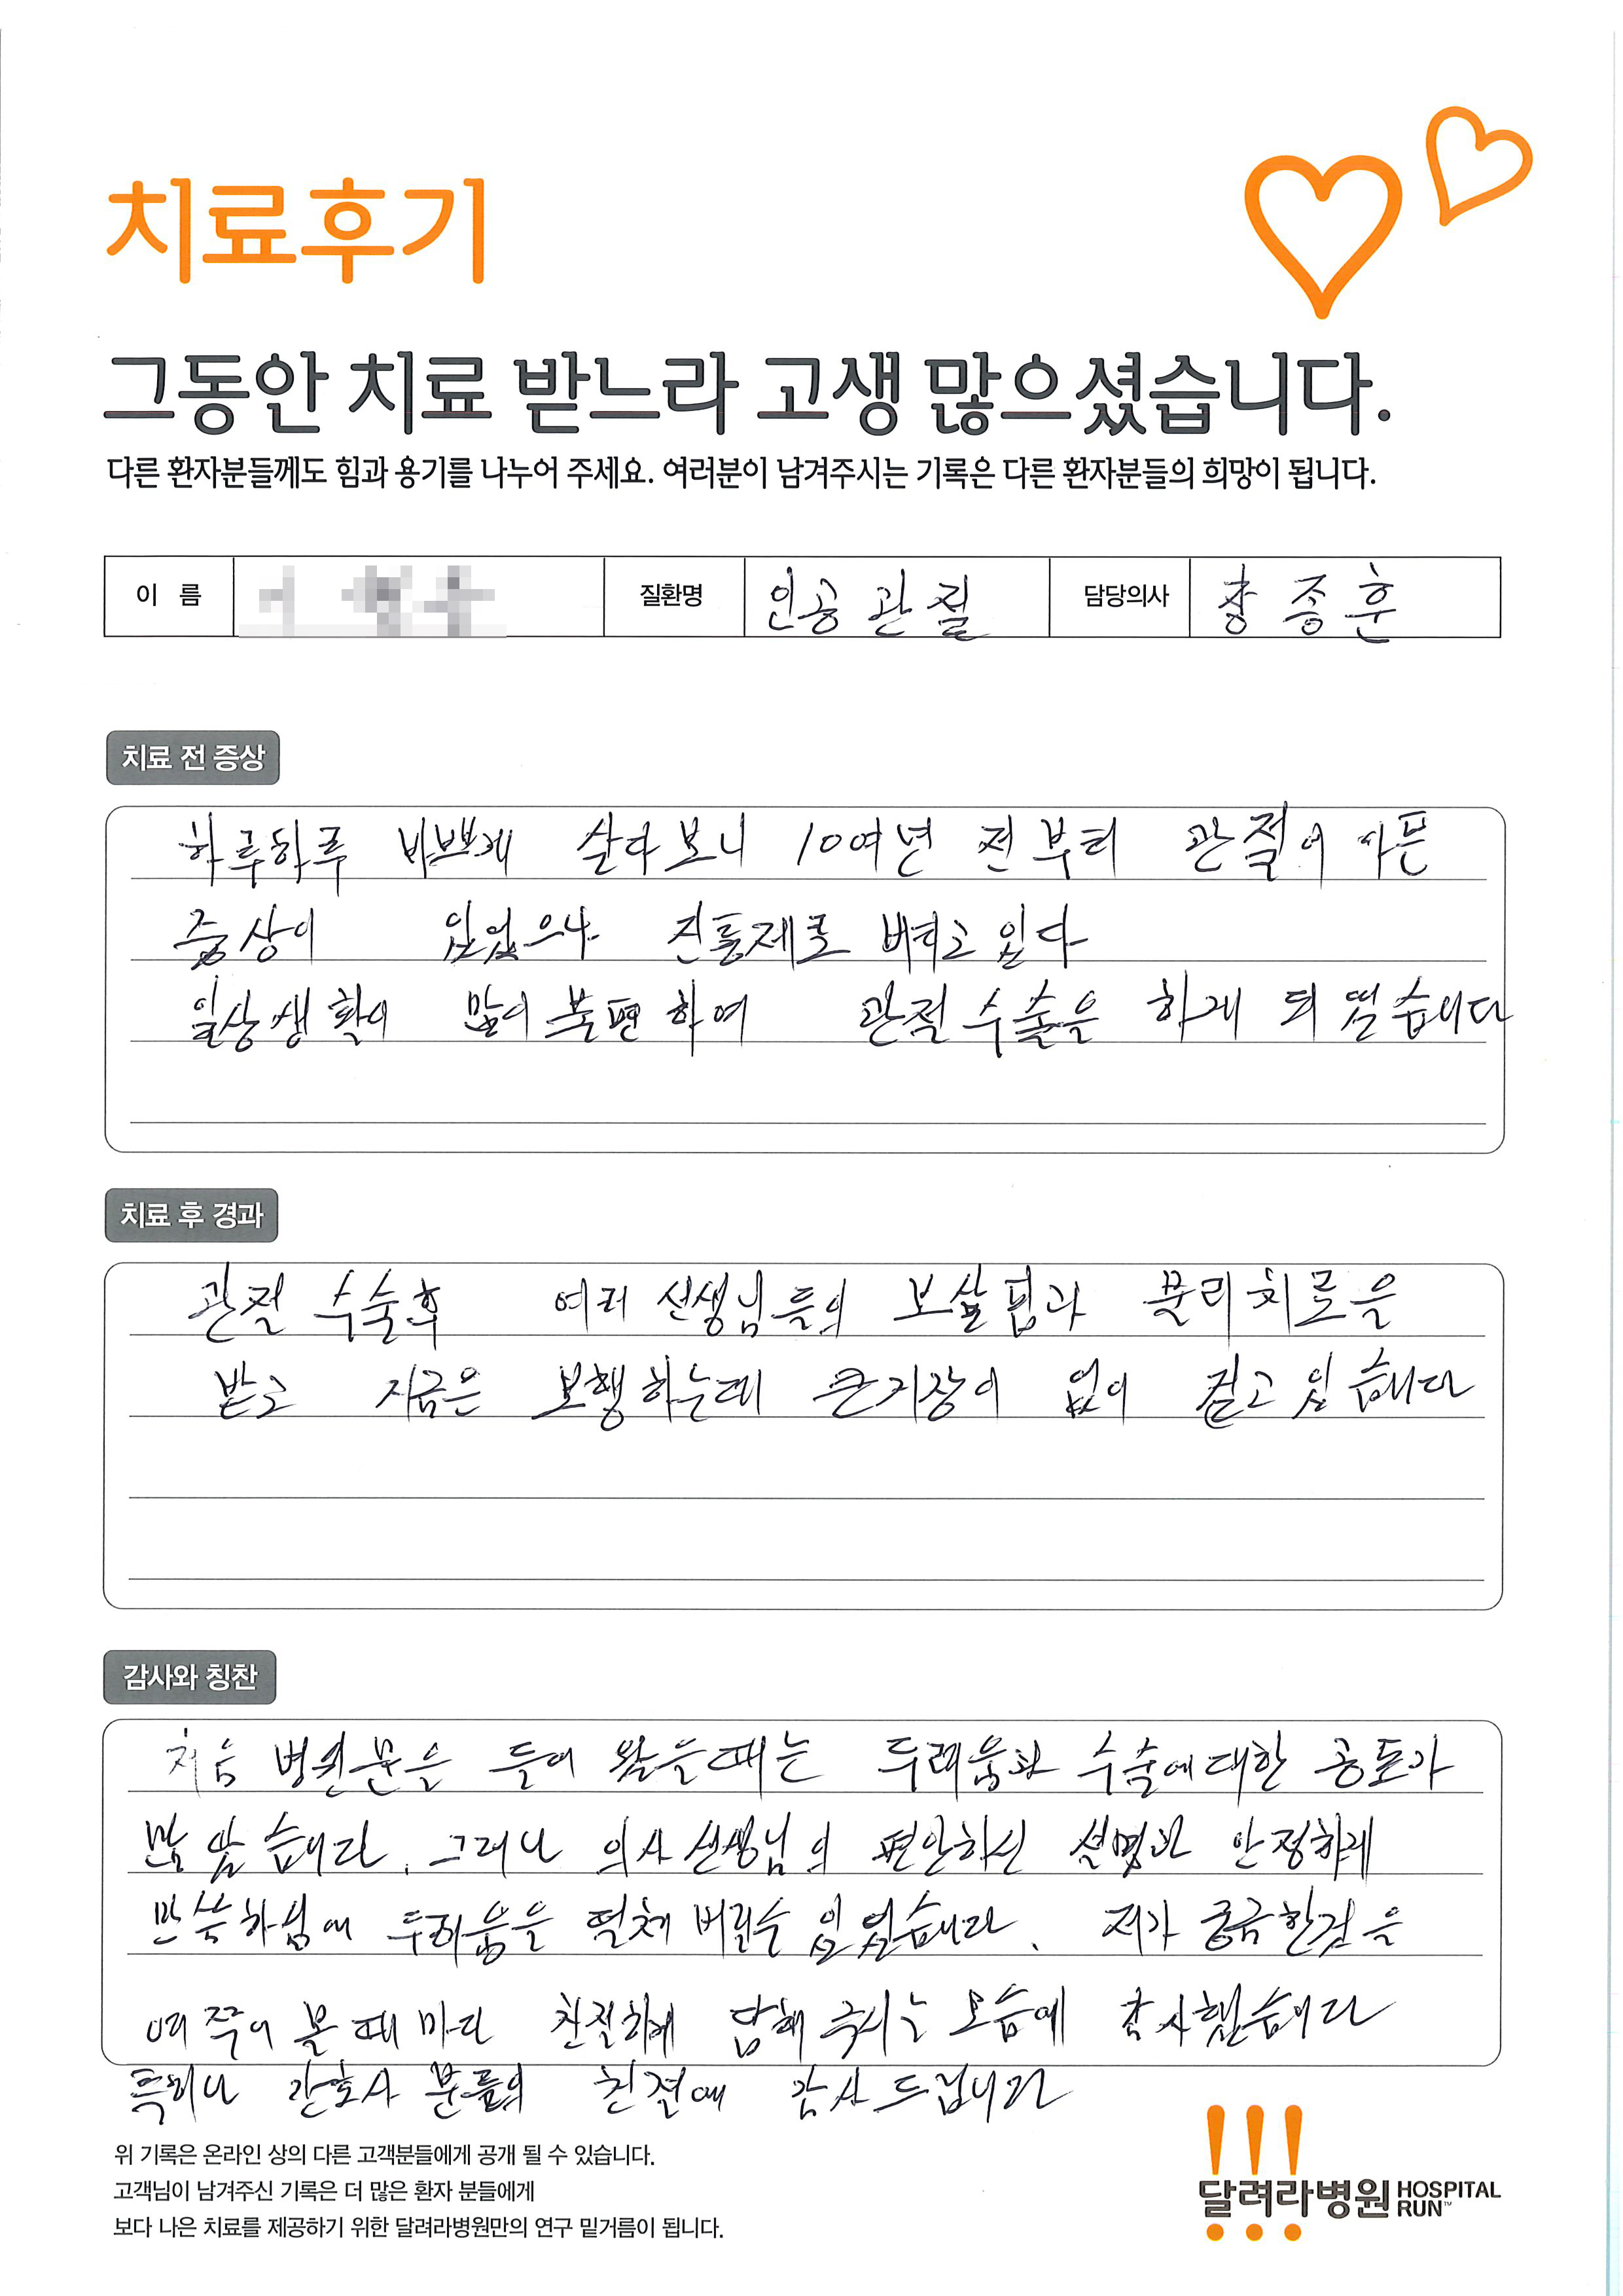 치료후기
그동안 치료 받느라 고생 많으셨습니다.
다른 환자분들께도 힘과 용기를 나누어 주세요. 여러분이 남겨주시는 기록은 다른 환자분들의 희망이 됩니다.
이 름 질환명 인공관절 담당의사 종훈
치료 전 증상
하루하루 바쁘게 살다보니 10여년 전부터 관절이 아픈
증상이 있었으나 진통제로 버티고 있다
일상생활이 많이 불편하여 관절수술을 하게 되었습니다
치료 후 경과
관절 수술후 여러 선생님들의 보살핌과 물리치료을
받고 지금은 보행하는데 큰지장이 없이 걷고있습니다
감사와 칭찬
처음 병원문을 들어 왔을때는 두려움과 수술에대한 공포가
많았습니다. 그러나 의사선생님의 편안하신 설명과 안정하게
두려움을 떨쳐 버릴수 있었습니다. 저가 궁금한것을
여쭈어 볼때마다 친절하게 답해주시는 모습에 감사했습니다
특히나 간호사 분들의 친절에 감사드립니다
위 기록은 온라인 상의 다른 고객분들에게 공개 될 수 있습니다.
고객님이 남겨주신 기록은 더 많은 환자 분들에게
보다 나은 치료를 제공하기 위한 달려라병원만의 연구 밑거름이 됩니다.
달려라병원 HOSPITAL RUN™